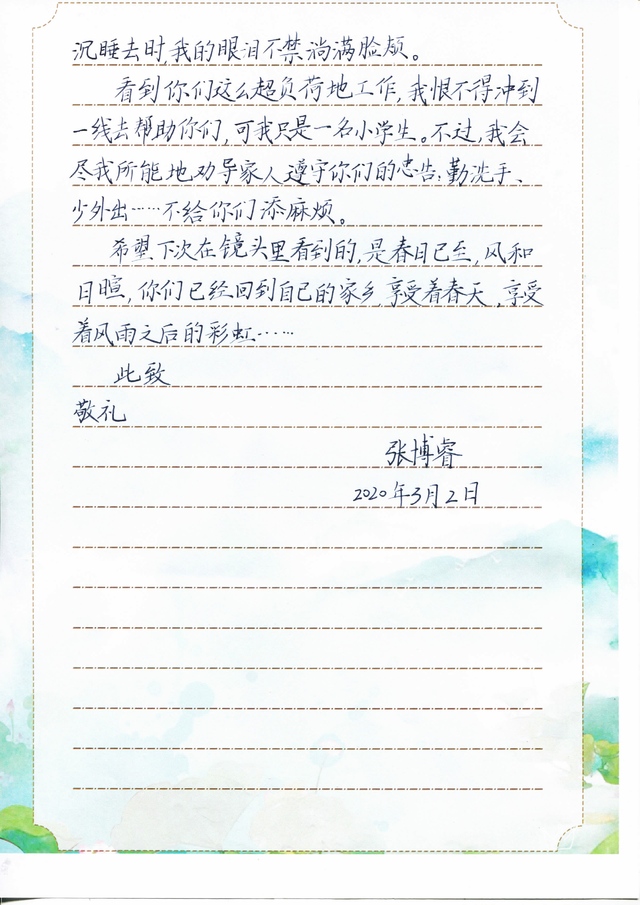 沉睡去时,我的眼泪不禁淌满脸颊。
看到你们这么超负荷地工作,我恨不得冲到
一线去帮助你们,可我只是一名小学生。不过,我会
尽我所能地劝导家人遵守你们的忠告:勤洗手、
少外出……不给你们添麻烦。
希望下次在镜头里看到的,是春日已至,风和
日暄,你们已经回到自己的家乡,享受着春天,享受
着风雨之后的彩虹……
此致
敬礼
张博睿
2020年3月2日